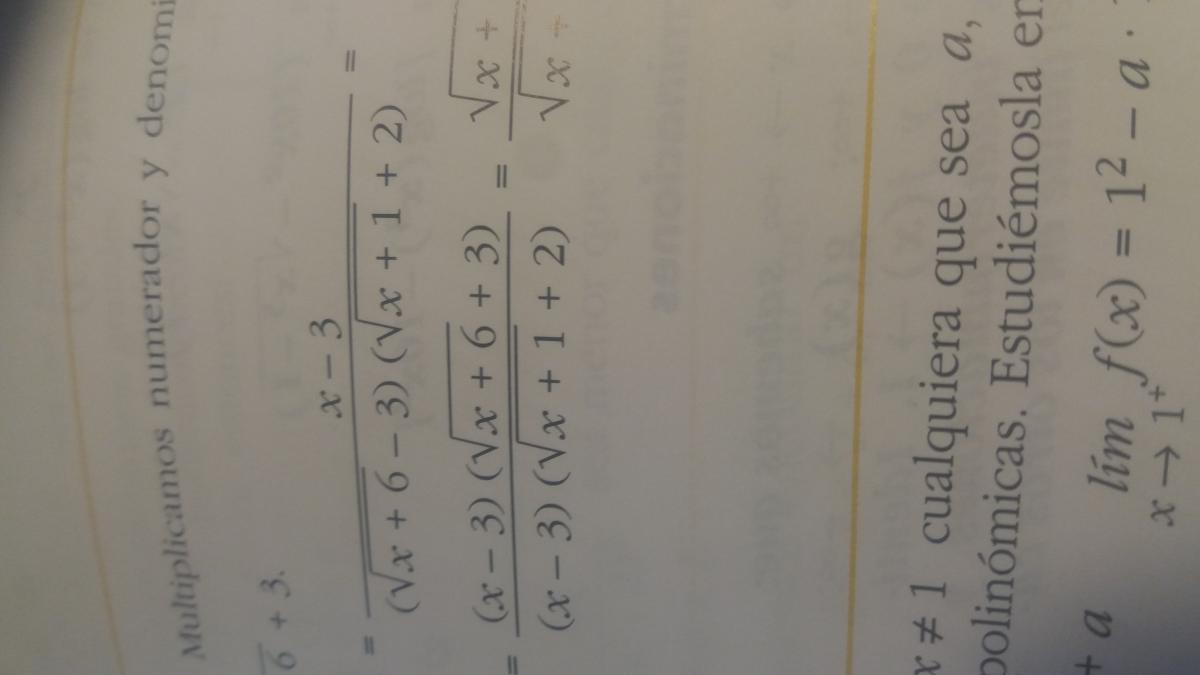 Multiplicamos numerador y denomi
6 + 3.
= x − 3 / (√x + 6 − 3) (√x + 1 + 2) =
= (x − 3) (√x + 6 + 3) / (x − 3) (√x + 1 + 2) = √x + / √x +
x ≠ 1 cualquiera que sea a,
polinómicas. Estudiémosla en
+ a lím x → 1⁺ f(x) = 1² − a ·